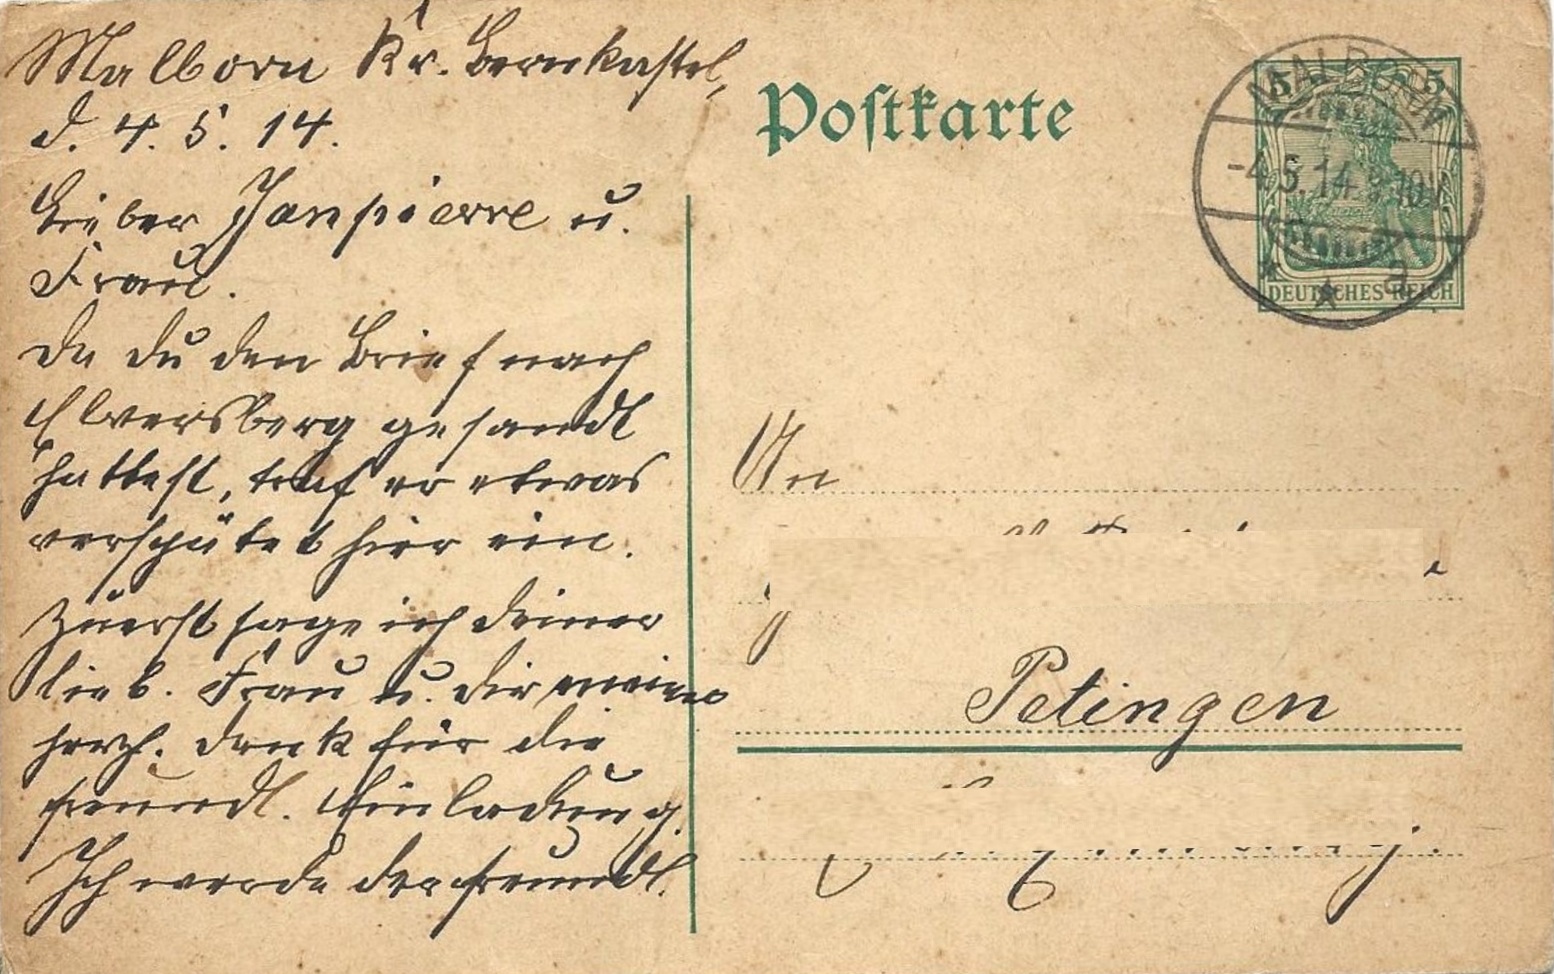 Malborn Kr. Bernkastel,
d. 4. 5. 14.
Lieber Janpierre u.
Frau.
Da du den Brief nach
Elversberg gesandt
hattest, traf er etwas
verspätet hier ein.
Zuerst sage ich deiner
lieb. Frau u. dir meinen
herzl. Dank für die
freundl. Einladung.
Ich werde der freundl.
Postkarte
5 5
MALBORN
-4.5.14. 9-10V.
* * a
DEUTSCHES REICH
An
Petingen